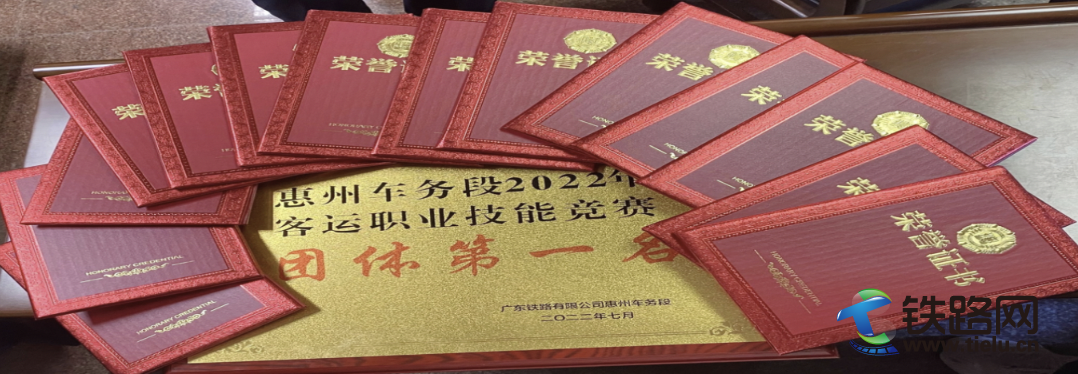 荣誉
荣誉
荣誉
荣誉证
荣誉
荣誉证
荣誉证
荣誉
荣誉证
荣誉
荣誉证书
HONORARY CREDENTIAL
HONORARY CREDENTIAL
惠州车务段2022年
客运职业技能竞赛
团体第一名
广东铁路有限公司惠州车务段
二〇二二年七月
铁路网